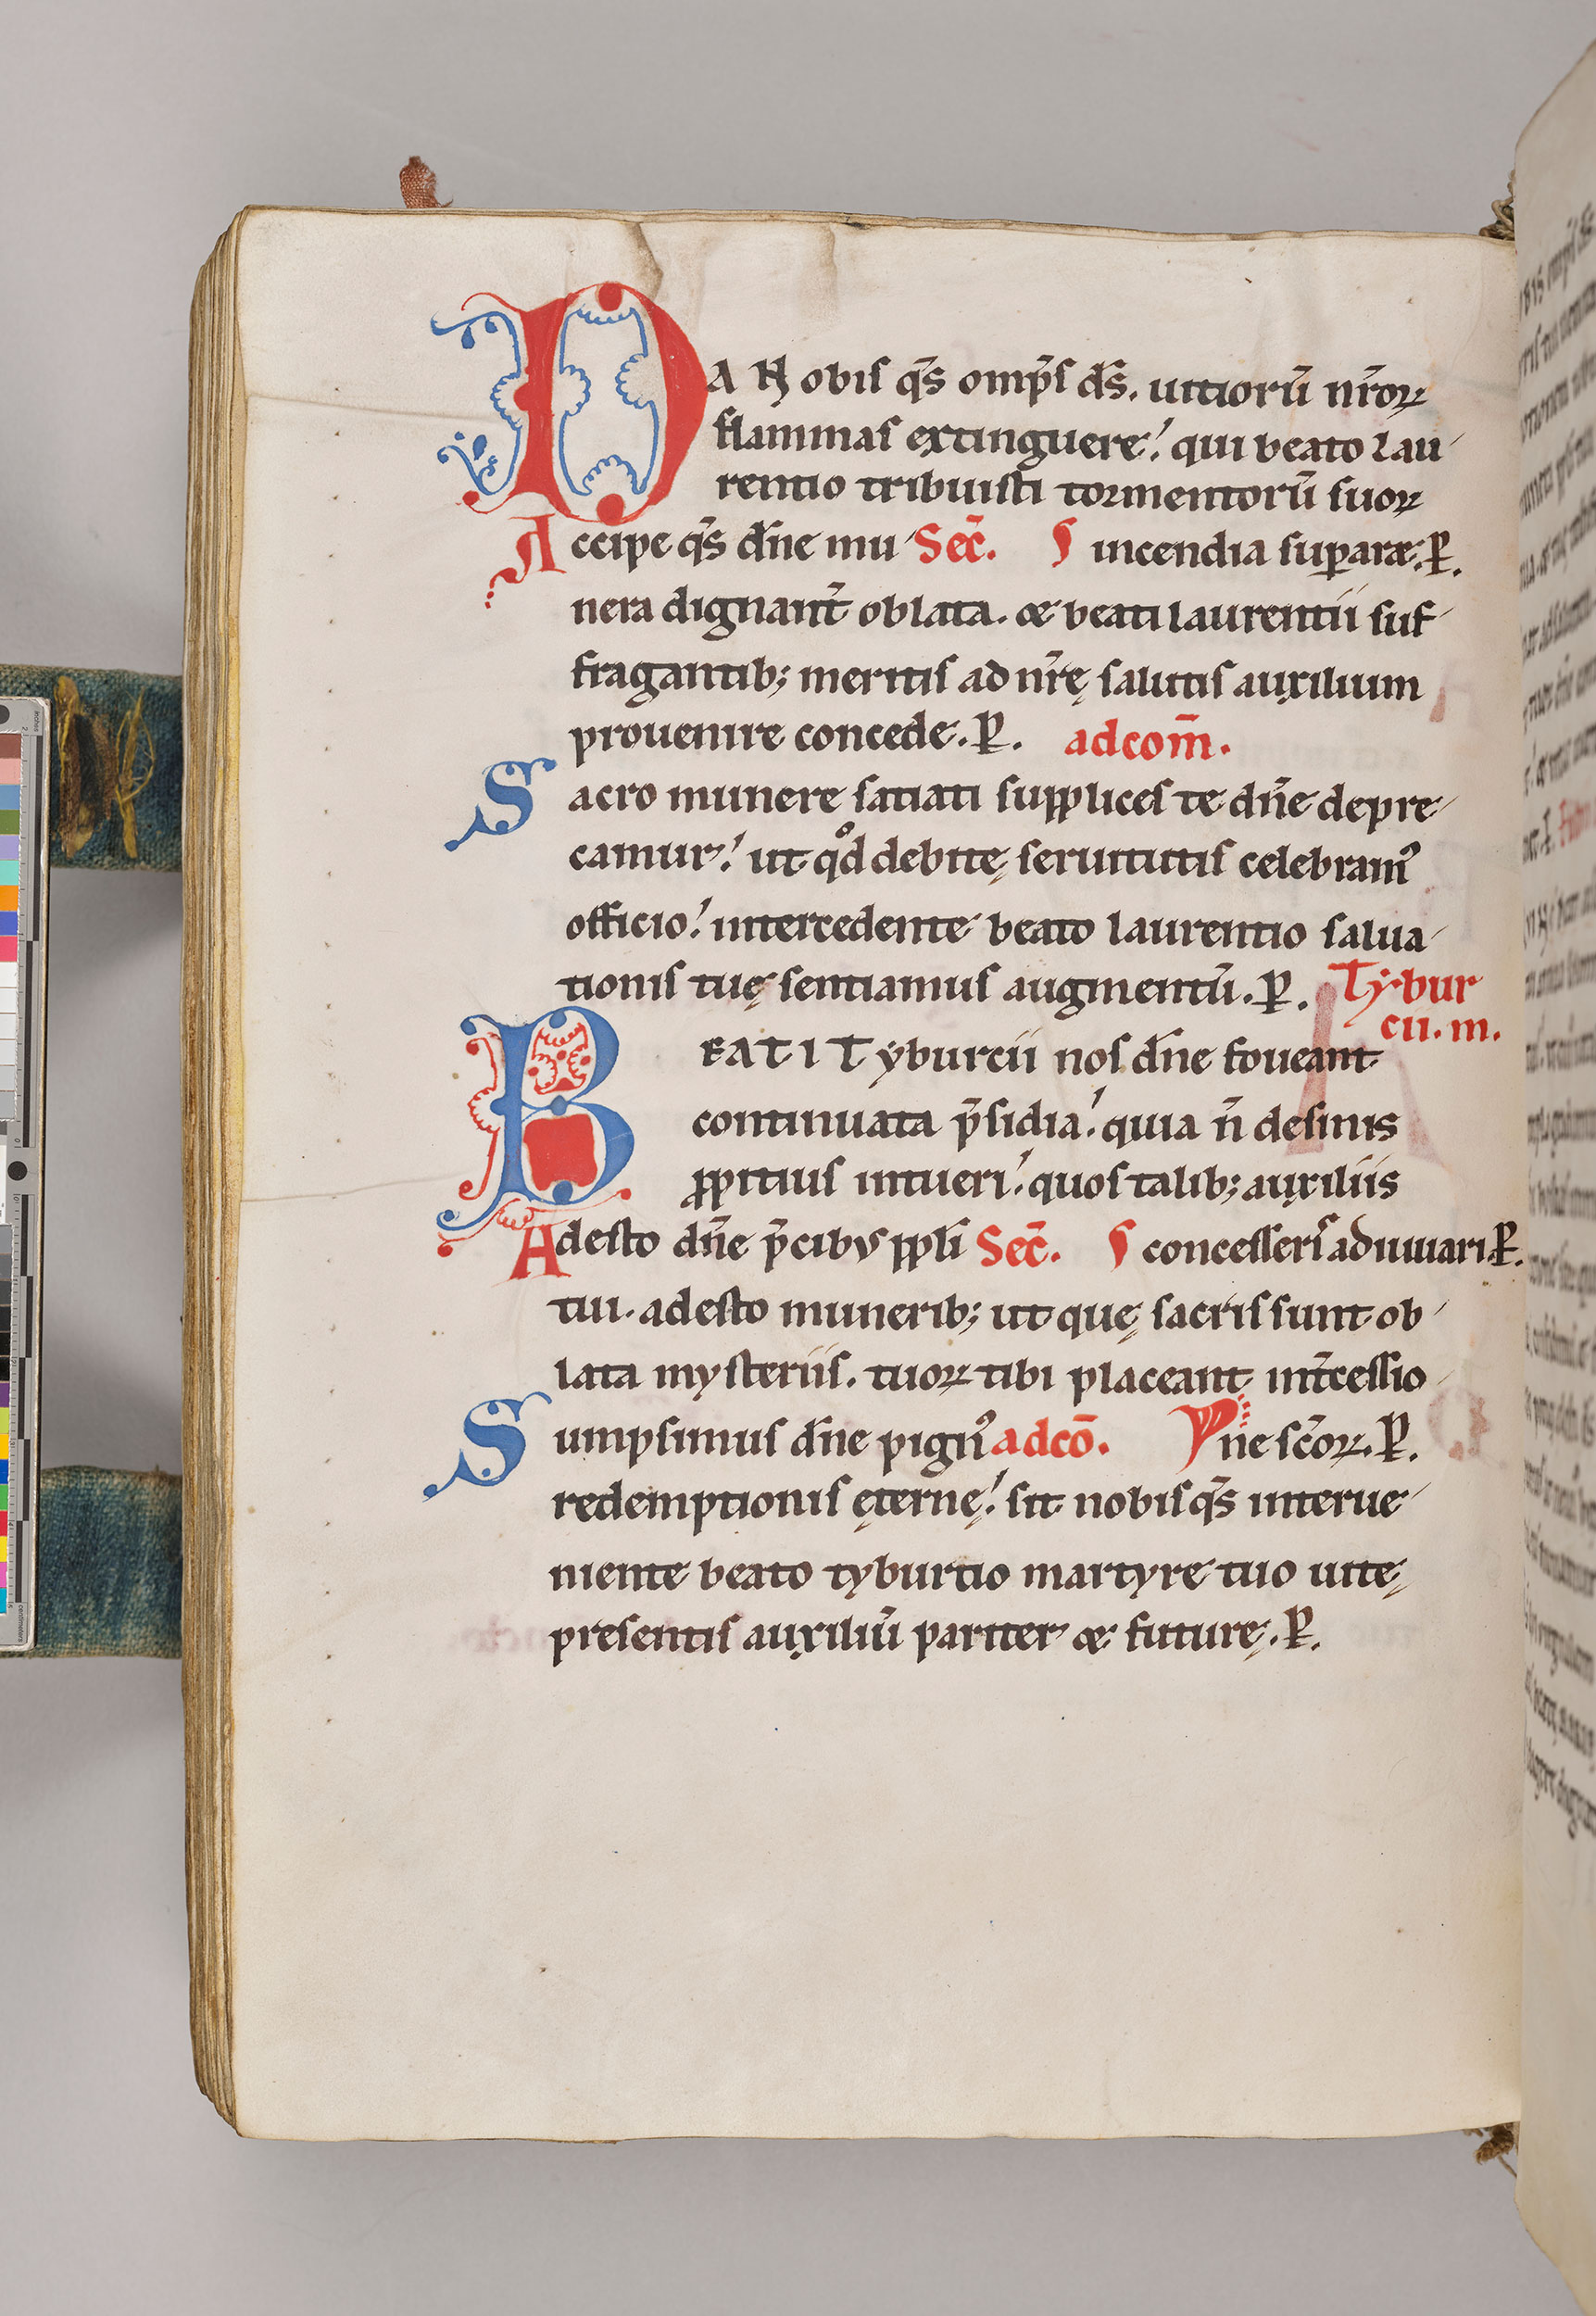 DA Nobis q̄s omp̄s ds̄. uitiorū nr̄oꝝ
flammas extinguere! qui beato lau
rentio tribuisti tormentorū suoꝝ
Accipe q̄s dn̄e mu Sec̄. incendia suꝑare. P.
nera dignant̄ oblata. & beati laurentii suf
fragantib; meritis ad nr̄ę salutis auxilium
prouenire concede. P. adcom̄.
Sacro munere satiati supplices te dn̄e depre
camur! ut qd̊ debitę seruitutis celebram᾽
officio! intercedente beato laurentio salua
tionis tuę sentiamus augmentū. P. Tybur
cii. m.
BEATI Tyburcii nos dn̄e foueant
continuata p̄sidia! quia n̄ desinis
ꝓpitius intueri! quos talib; auxiliis
Adesto dn̄e p̄cibus ppl̄i Sec̄. concesseris adiuuari. P.
tui. adesto munerib; ut quę sacris sunt ob
lata mysteriis. tuoꝝ tibi placeant int̄cessio
Sumpsimus dn̄e pign᾽ adcō. ne sc̄oꝝ. P.
redemptionis ęternę! sit nobis q̄s interue
niente beato tyburtio martyre tuo uitę
presentis auxiliū pariter & futurę. P.